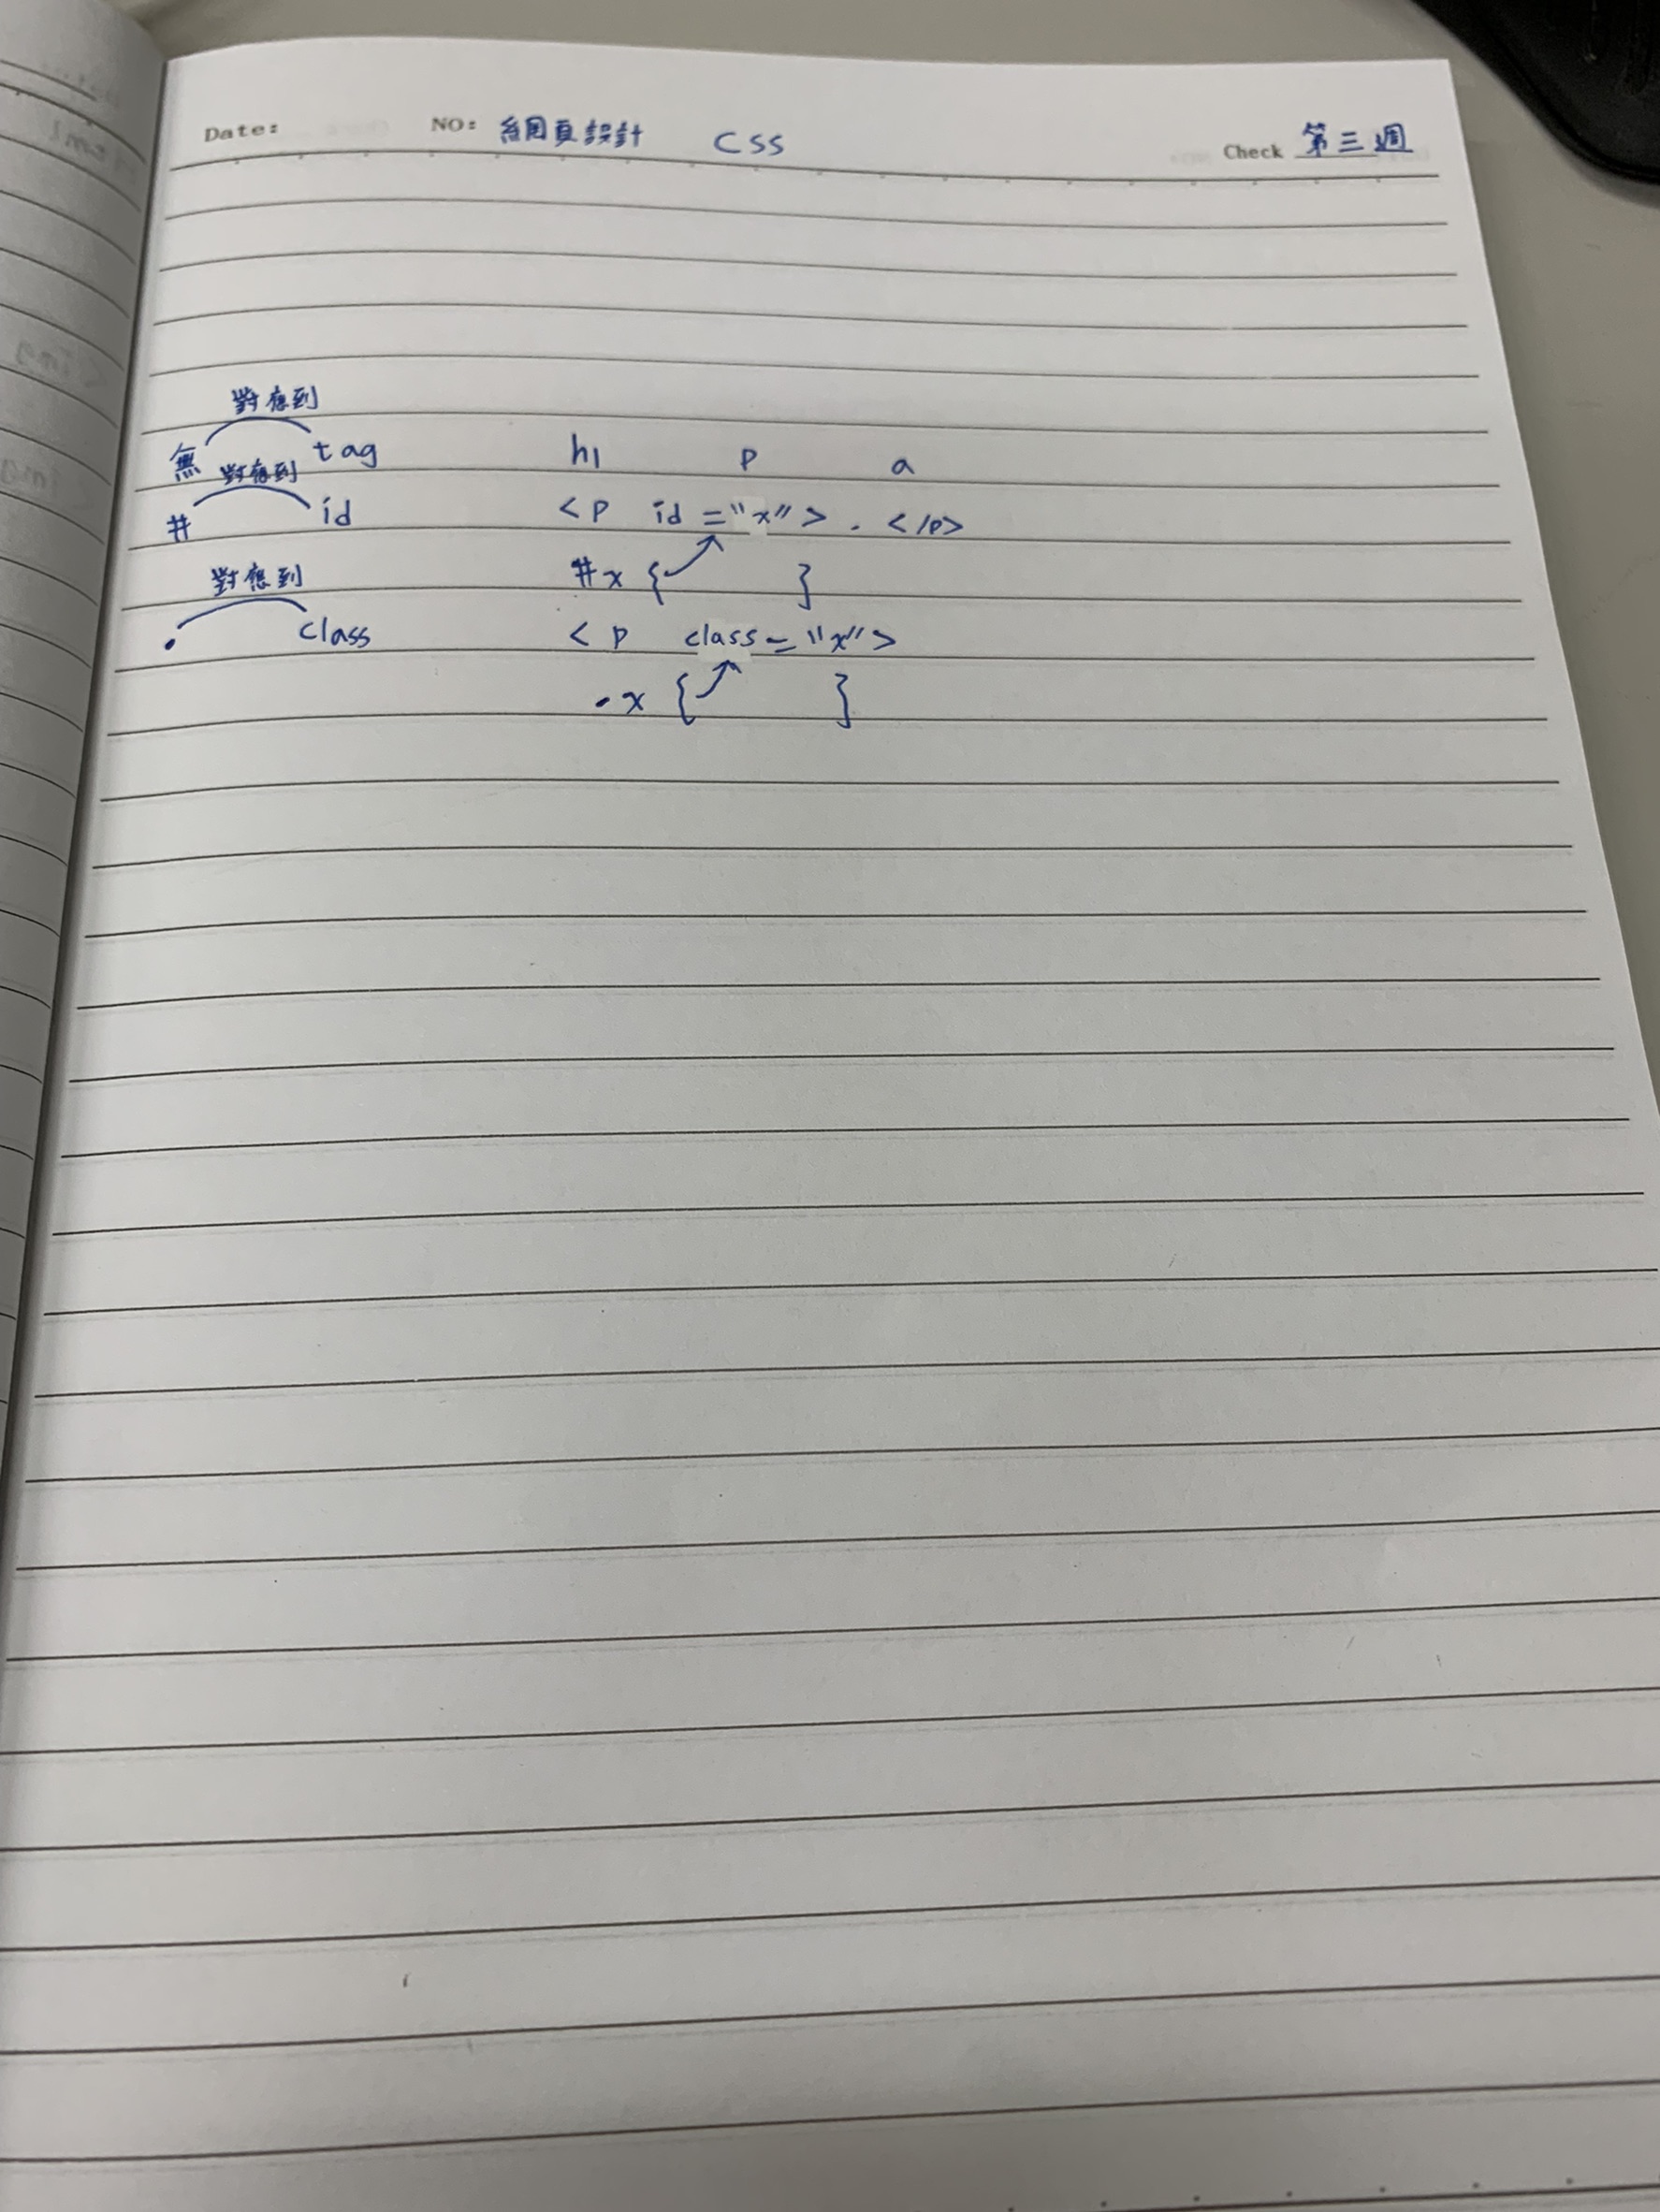 Date: NO: 網頁設計 CSS Check 第三週
對應到
無 tag h1 p a
對應到
# id <p id="x"> . </p>
#x { }
對應到
. class <p class="x">
.x { }